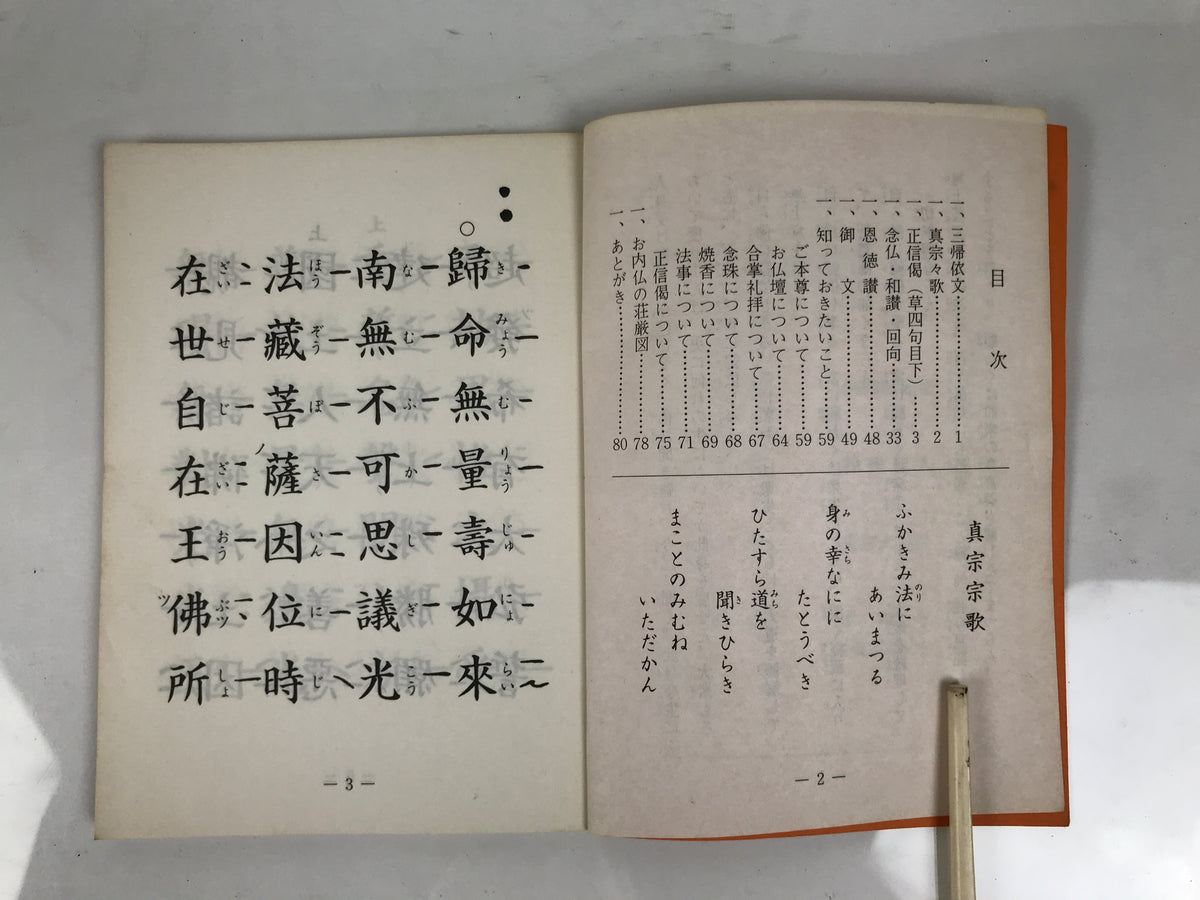 目次
一、三帰依文……………………1
一、真宗々歌……………………2
一、正信偈(草四句目下)……3
一、念仏・和讃・回向…………33
一、恩徳讃………………………48
一、御文…………………………49
一、知っておきたいこと………59
ご本尊について…………………59
お仏壇について…………………64
合掌礼拝について………………67
念珠について……………………68
焼香について……………………69
法事について……………………71
正信偈について…………………75
一、お内仏の荘厳図……………78
一、あとがき……………………80
真宗宗歌
ふかきみ法に
あいまつる
身の幸なにに
たとうべき
ひたすら道を
聞きひらき
まことのみむね
いただかん
— 2 —
歸命無量壽如來
南無不可思議光
法藏菩薩因位時
在世自在王佛所
— 3 —